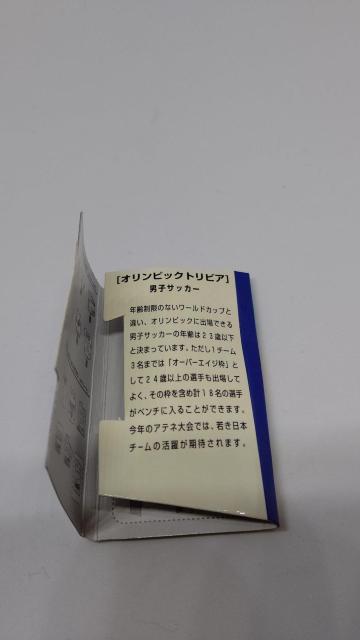 [オリンピックトリビア]
男子サッカー
年齢制限のないワールドカップと
違い、オリンピックに出場できる
男子サッカーの年齢は23歳以下
と決まっています。ただし1チーム
3名までは「オーバーエイジ枠」と
して24歳以上の選手も出場して
よく、その枠を含め計18名の選手
がベンチに入ることができます。
今年のアテネ大会では、若き日本
チームの活躍が期待されます。